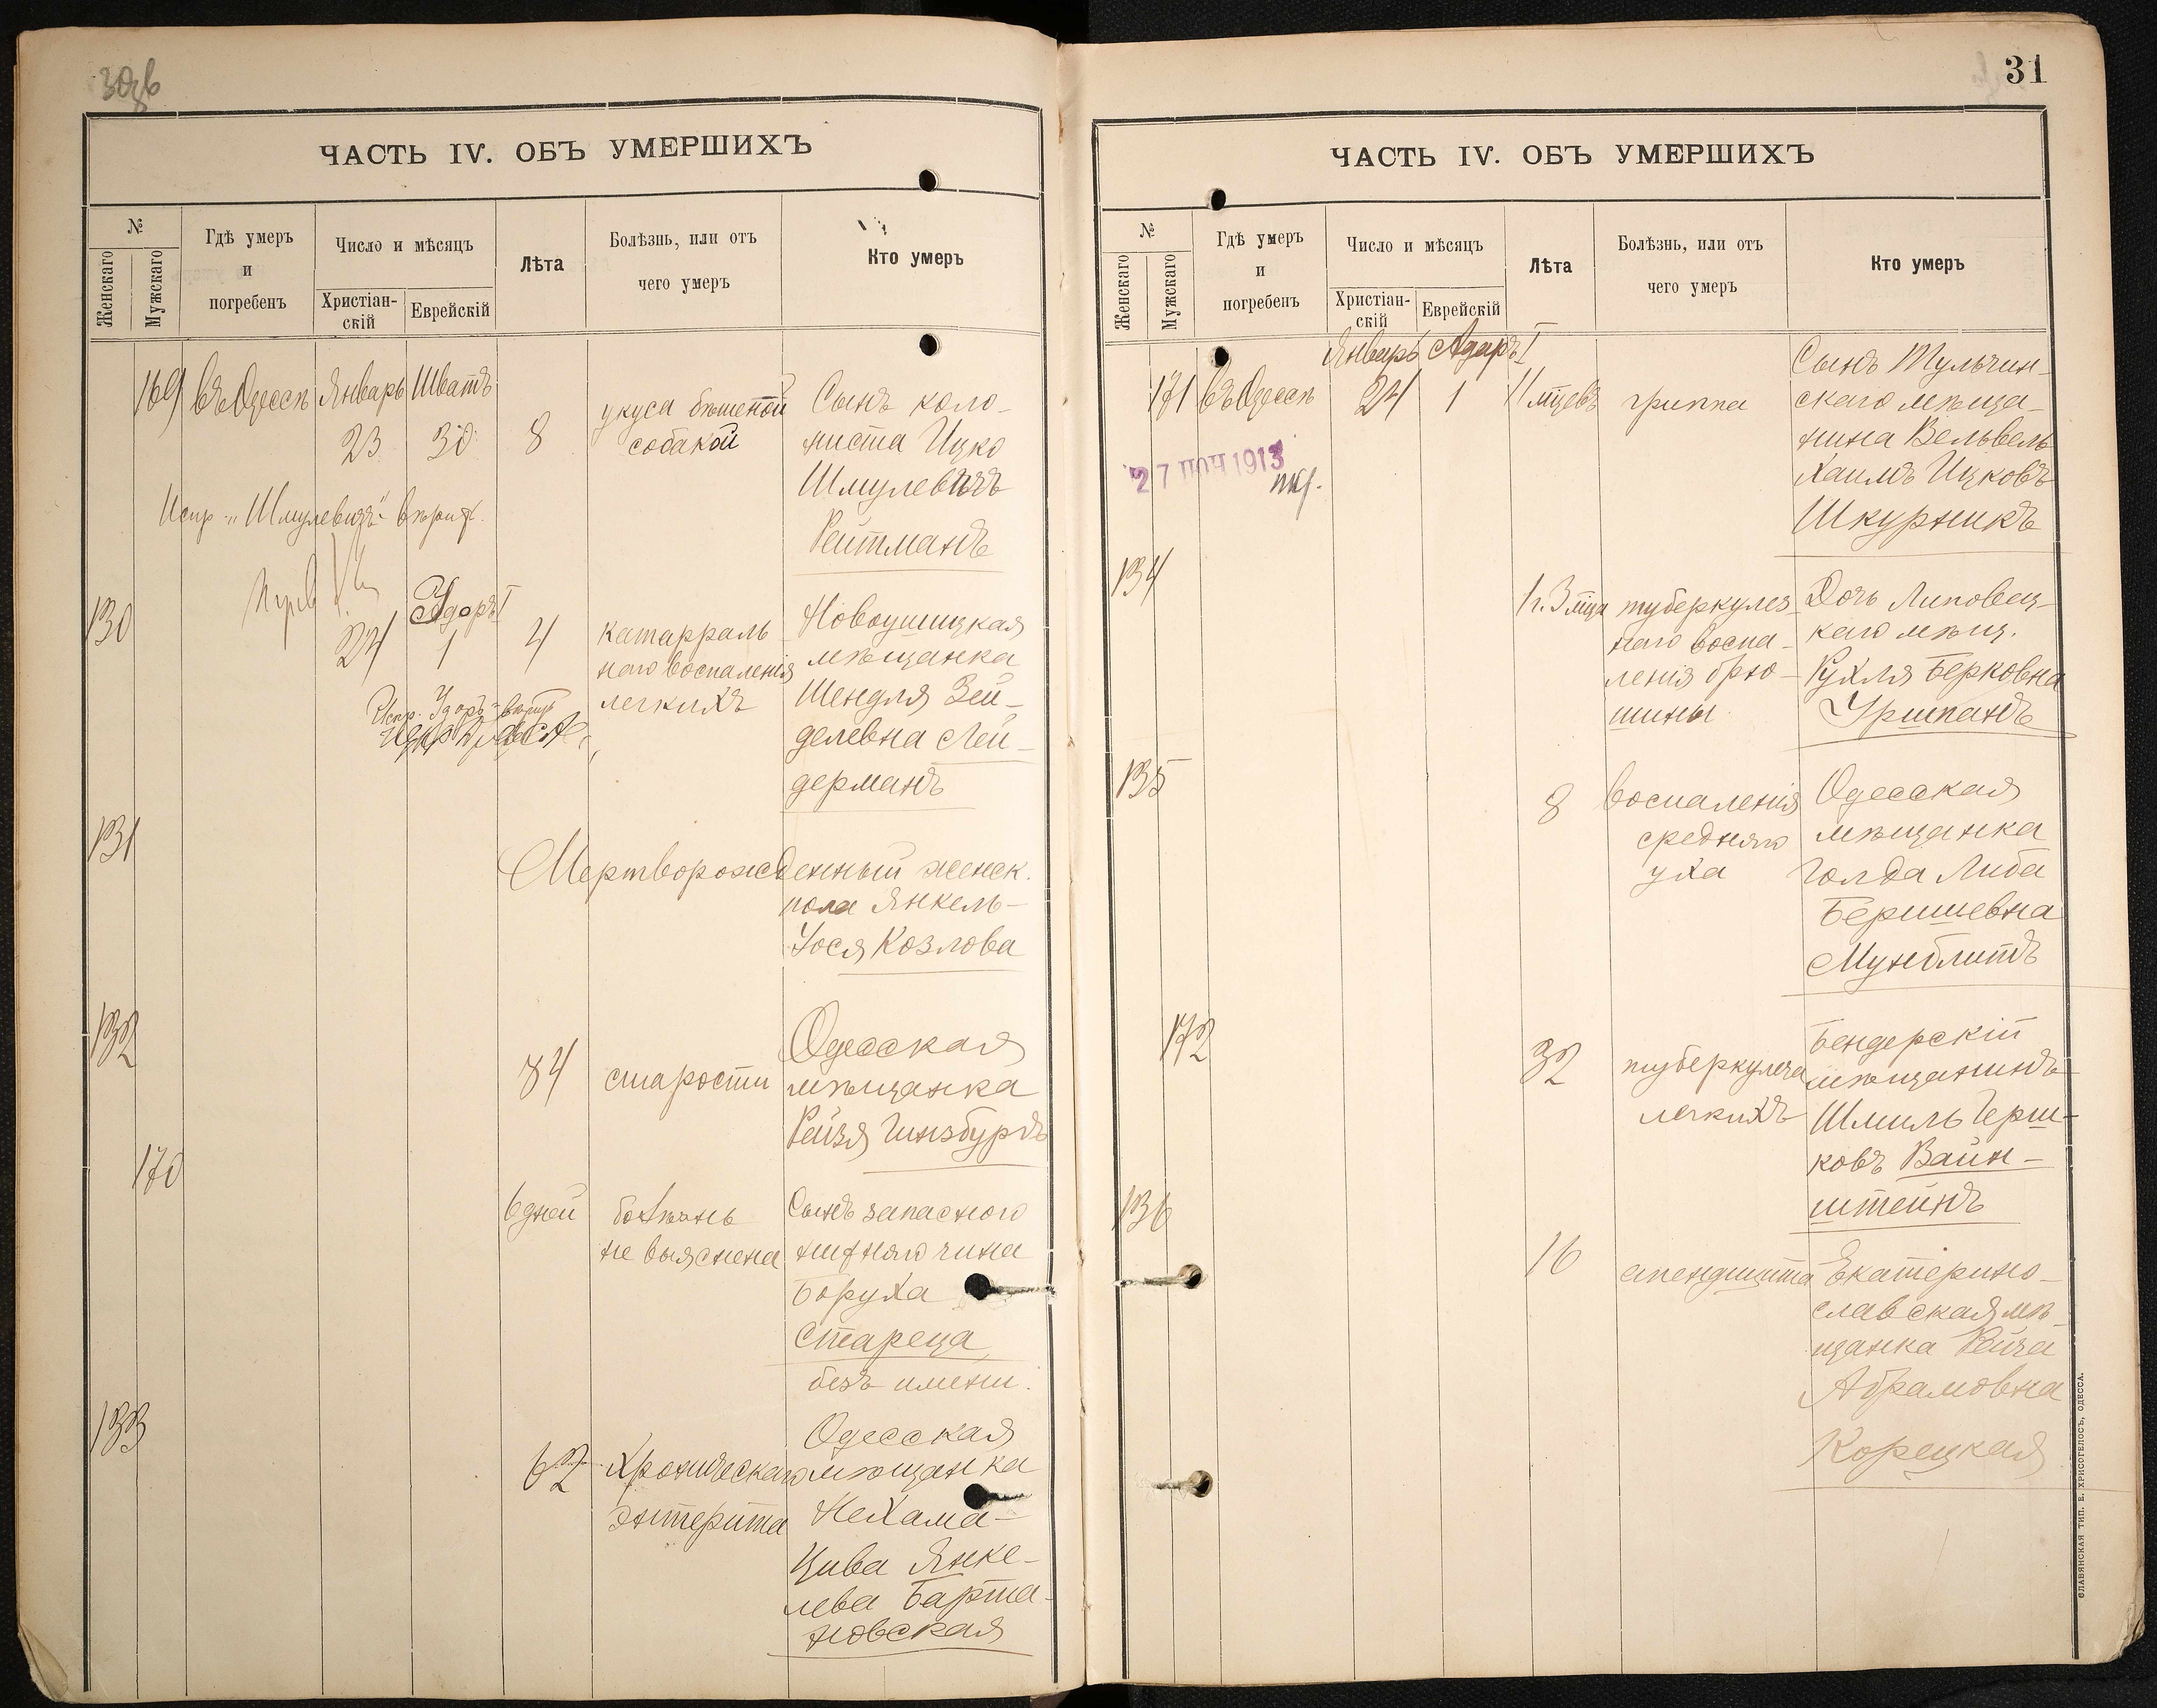 ЧАСТЬ IV. ОБЪ УМЕРШИХЪ
№
Женскаго
Мужскаго
Гдѣ умеръ
и
погребенъ
Число и мѣсяцъ
Христіан-
скій
Еврейскій
Лѣта
Болѣзнь, или отъ
чего умеръ
Кто умеръ
169 въ Одессѣ Январь Шватъ
23 30 8
укуса бѣшеной
собакой
Сынъ коло-
ниста Ицко
Шмулевичъ
Рейтманъ
Испр. "Шмулевичъ"
130
24
Адаръ I
1
4
катарраль-
наго воспаленія
легкихъ
Новоушицкая
мѣщанка
Шендля Зей-
делевна Лей-
дерманъ
131
Мертворожденный женск.
пола Янкель-
Іося Козлова
132
84 старости
Одесская
мѣщанка
Рейзя Гинзбургъ
170
6 дней болѣзнь
не выяснена
Сынъ запасного
нижняго чина
Боруха
Стареца
безъ имени.
133
62 Хроническаго
энтерита
Одесская
мѣщанка
Нехама-
Цива Янке-
лева Барта-
новская
31
ЧАСТЬ IV. ОБЪ УМЕРШИХЪ
№
Женскаго
Мужскаго
Гдѣ умеръ
и
погребенъ
Число и мѣсяцъ
Христіан-
скій
Еврейскій
Лѣта
Болѣзнь, или отъ
чего умеръ
Кто умеръ
Январь Адаръ I
171 въ Одессѣ 24 1 11 мцевъ гриппа
Сынъ Тульчин-
скаго мѣща-
нина Вельвель
Хаимъ Ицковъ
Шкурникъ
27 1913
134
1 г. 3 мца туберкулез-
наго воспа-
ленія брю-
шины
Дочь Липовец-
каго мѣщ.
Рухля Берковна
Уришанъ
135
8 воспаленія
средняго
уха
Одесская
мѣщанка
Голда Либа
Беришевна
Мунблитъ
172
32 туберкулеза
легкихъ
Бендерскій
мѣщанинъ
Шмиль Герш-
ковъ Вайн-
штейнъ
136
16 апендицита
Екатерино-
славская мѣ-
щанка Рейза
Абрамовна
Корецкая
СЛАВЯНСКАЯ ТИП. Е. ХРИСОГЕЛОСЪ, ОДЕССА.